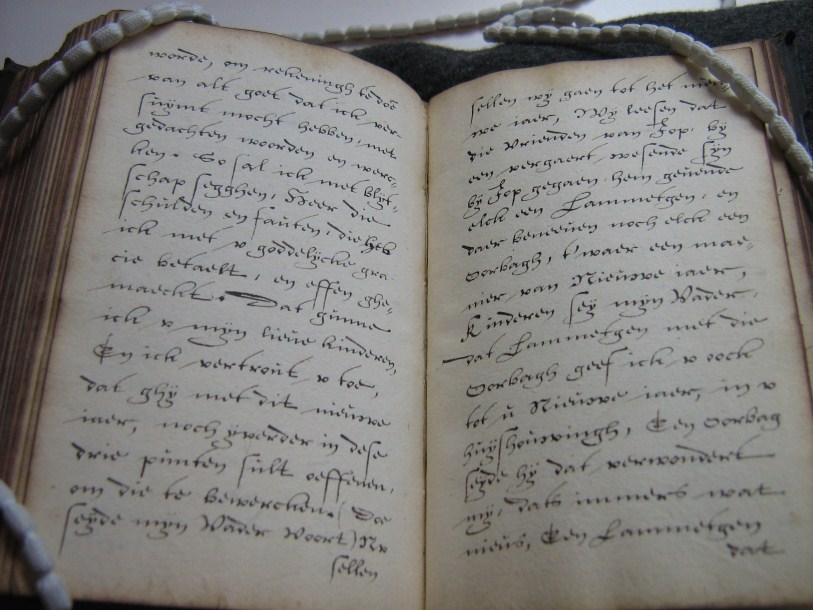 worde, om rekeningh te doē
van alt goet dat ick ver-
suÿmt mocht hebben, met
gedachten woorden en werc-
ken. So sal ick met blijt-
schap segghen, Heer die
schulden en fauten, die heb
ick met v goddelÿcke gra-
cie betaelt, en effen ghe-
maeckt. Dat gunne
ick v mÿn lieue kinderen,
En ick vertrout v toe,
dat ghÿ met dit nieuwe
iaer, noch ÿverder in dese
drie punten sult oeffenen,
om die te bewercken. (Doe
seÿde mÿn Vader Voort) Nv
sellen
sellen wÿ gaen tot het nieu-
we iaer, Wÿ leesen dat
die Vrienden van Iop. bÿ
een vergaert, wesende sÿn
bÿ Iop gegaen. hem geuende
elck een Lammetgen, en
daer beneeven noch elck een
Oorbagh, t'waer een mae-
nier, van Nieuwe iaer,
Kinderen seÿ mÿn Vader,
dat Lammetgen met die
Oorbagh geef ick v oock
tot ū Nieuwe iaer, in v
huÿshouwingh, Een Oorbag
seÿde hÿ dat verwondert
mÿ, dats immers wat
nieus, Een Lammetgen
dat